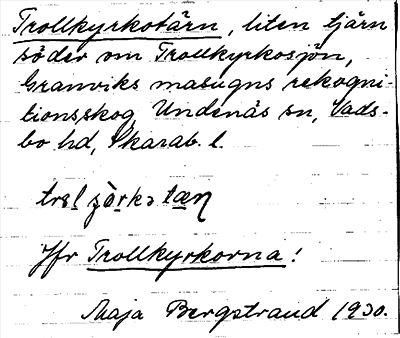 Trollkyrkotärn, liten tjärn
söder om Trollkyrkosjön,
Granviks masugns rekogni-
tionsskog, Undenäs sn, Vads-
bo hd, Skarab. l.
Jfr Trollkyrkorna!
Maja Bergstrand 1930.